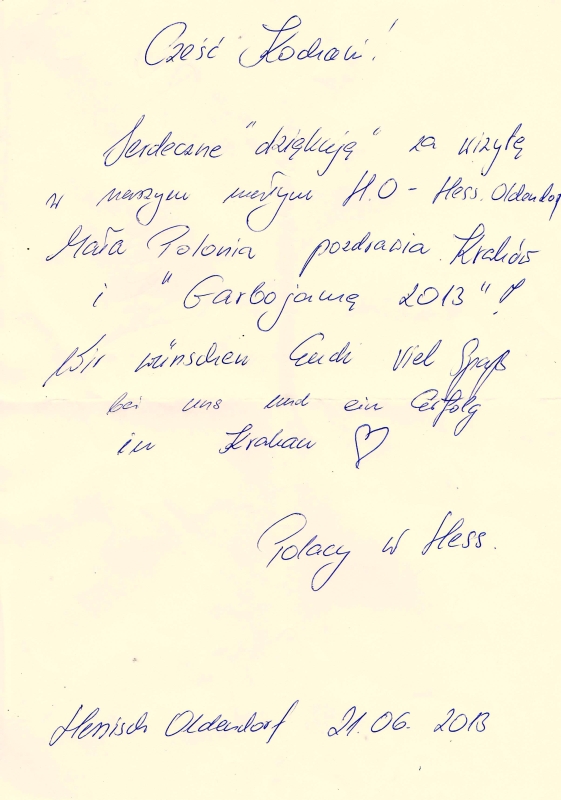 Cześć Kochani!
Serdeczne "dziękuję" za wizytę
w naszym małym H.O - Hess. Oldendorf
Mała Polonia pozdrawia Kraków
i "Garbojamą 2013"!
Wir wünschen Euch viel Spaß
bei uns und ein Erfolg
in Krakau
Polacy w Hess.
Hessisch Oldendorf 21.06. 2013